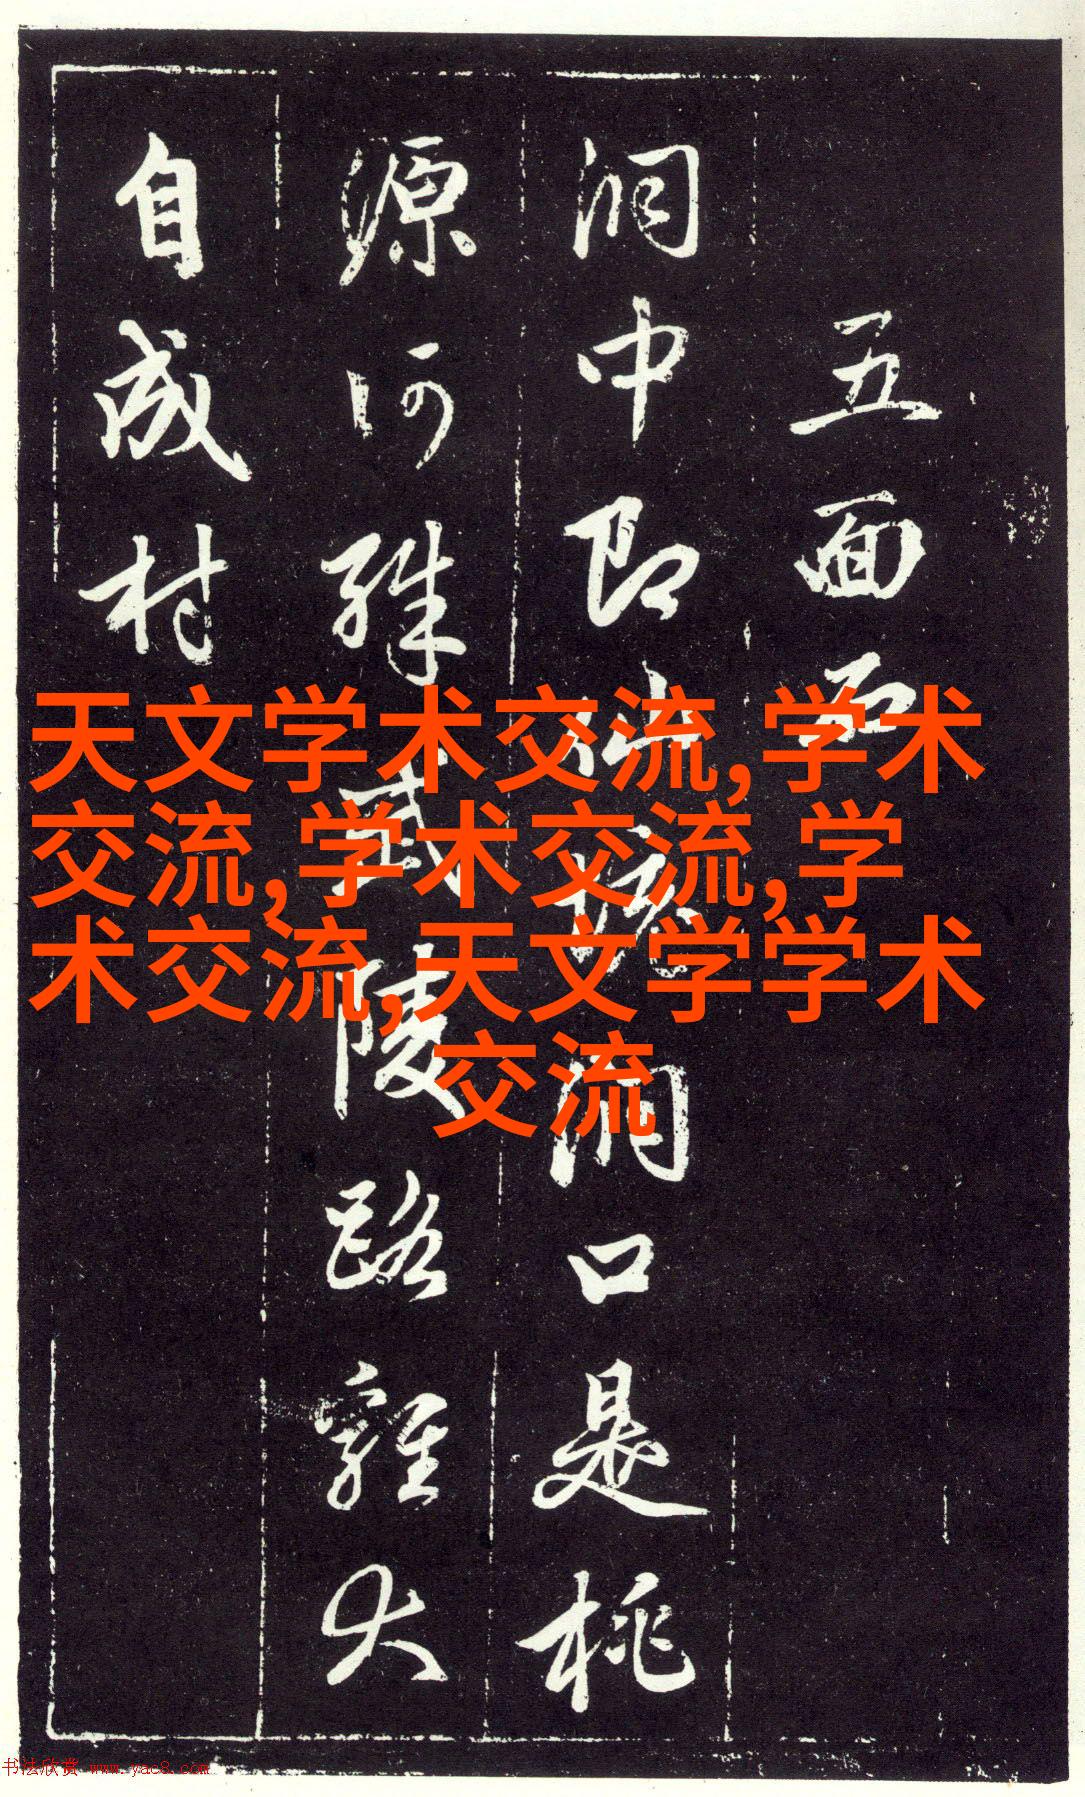 五面而
洞中即仙境洞口是桃
源何殊武陵路雞犬
自成村
天文学术交流,学术
交流,学术交流,学
术交流,天文学学术
交流
书法欣赏 www.yac8.com